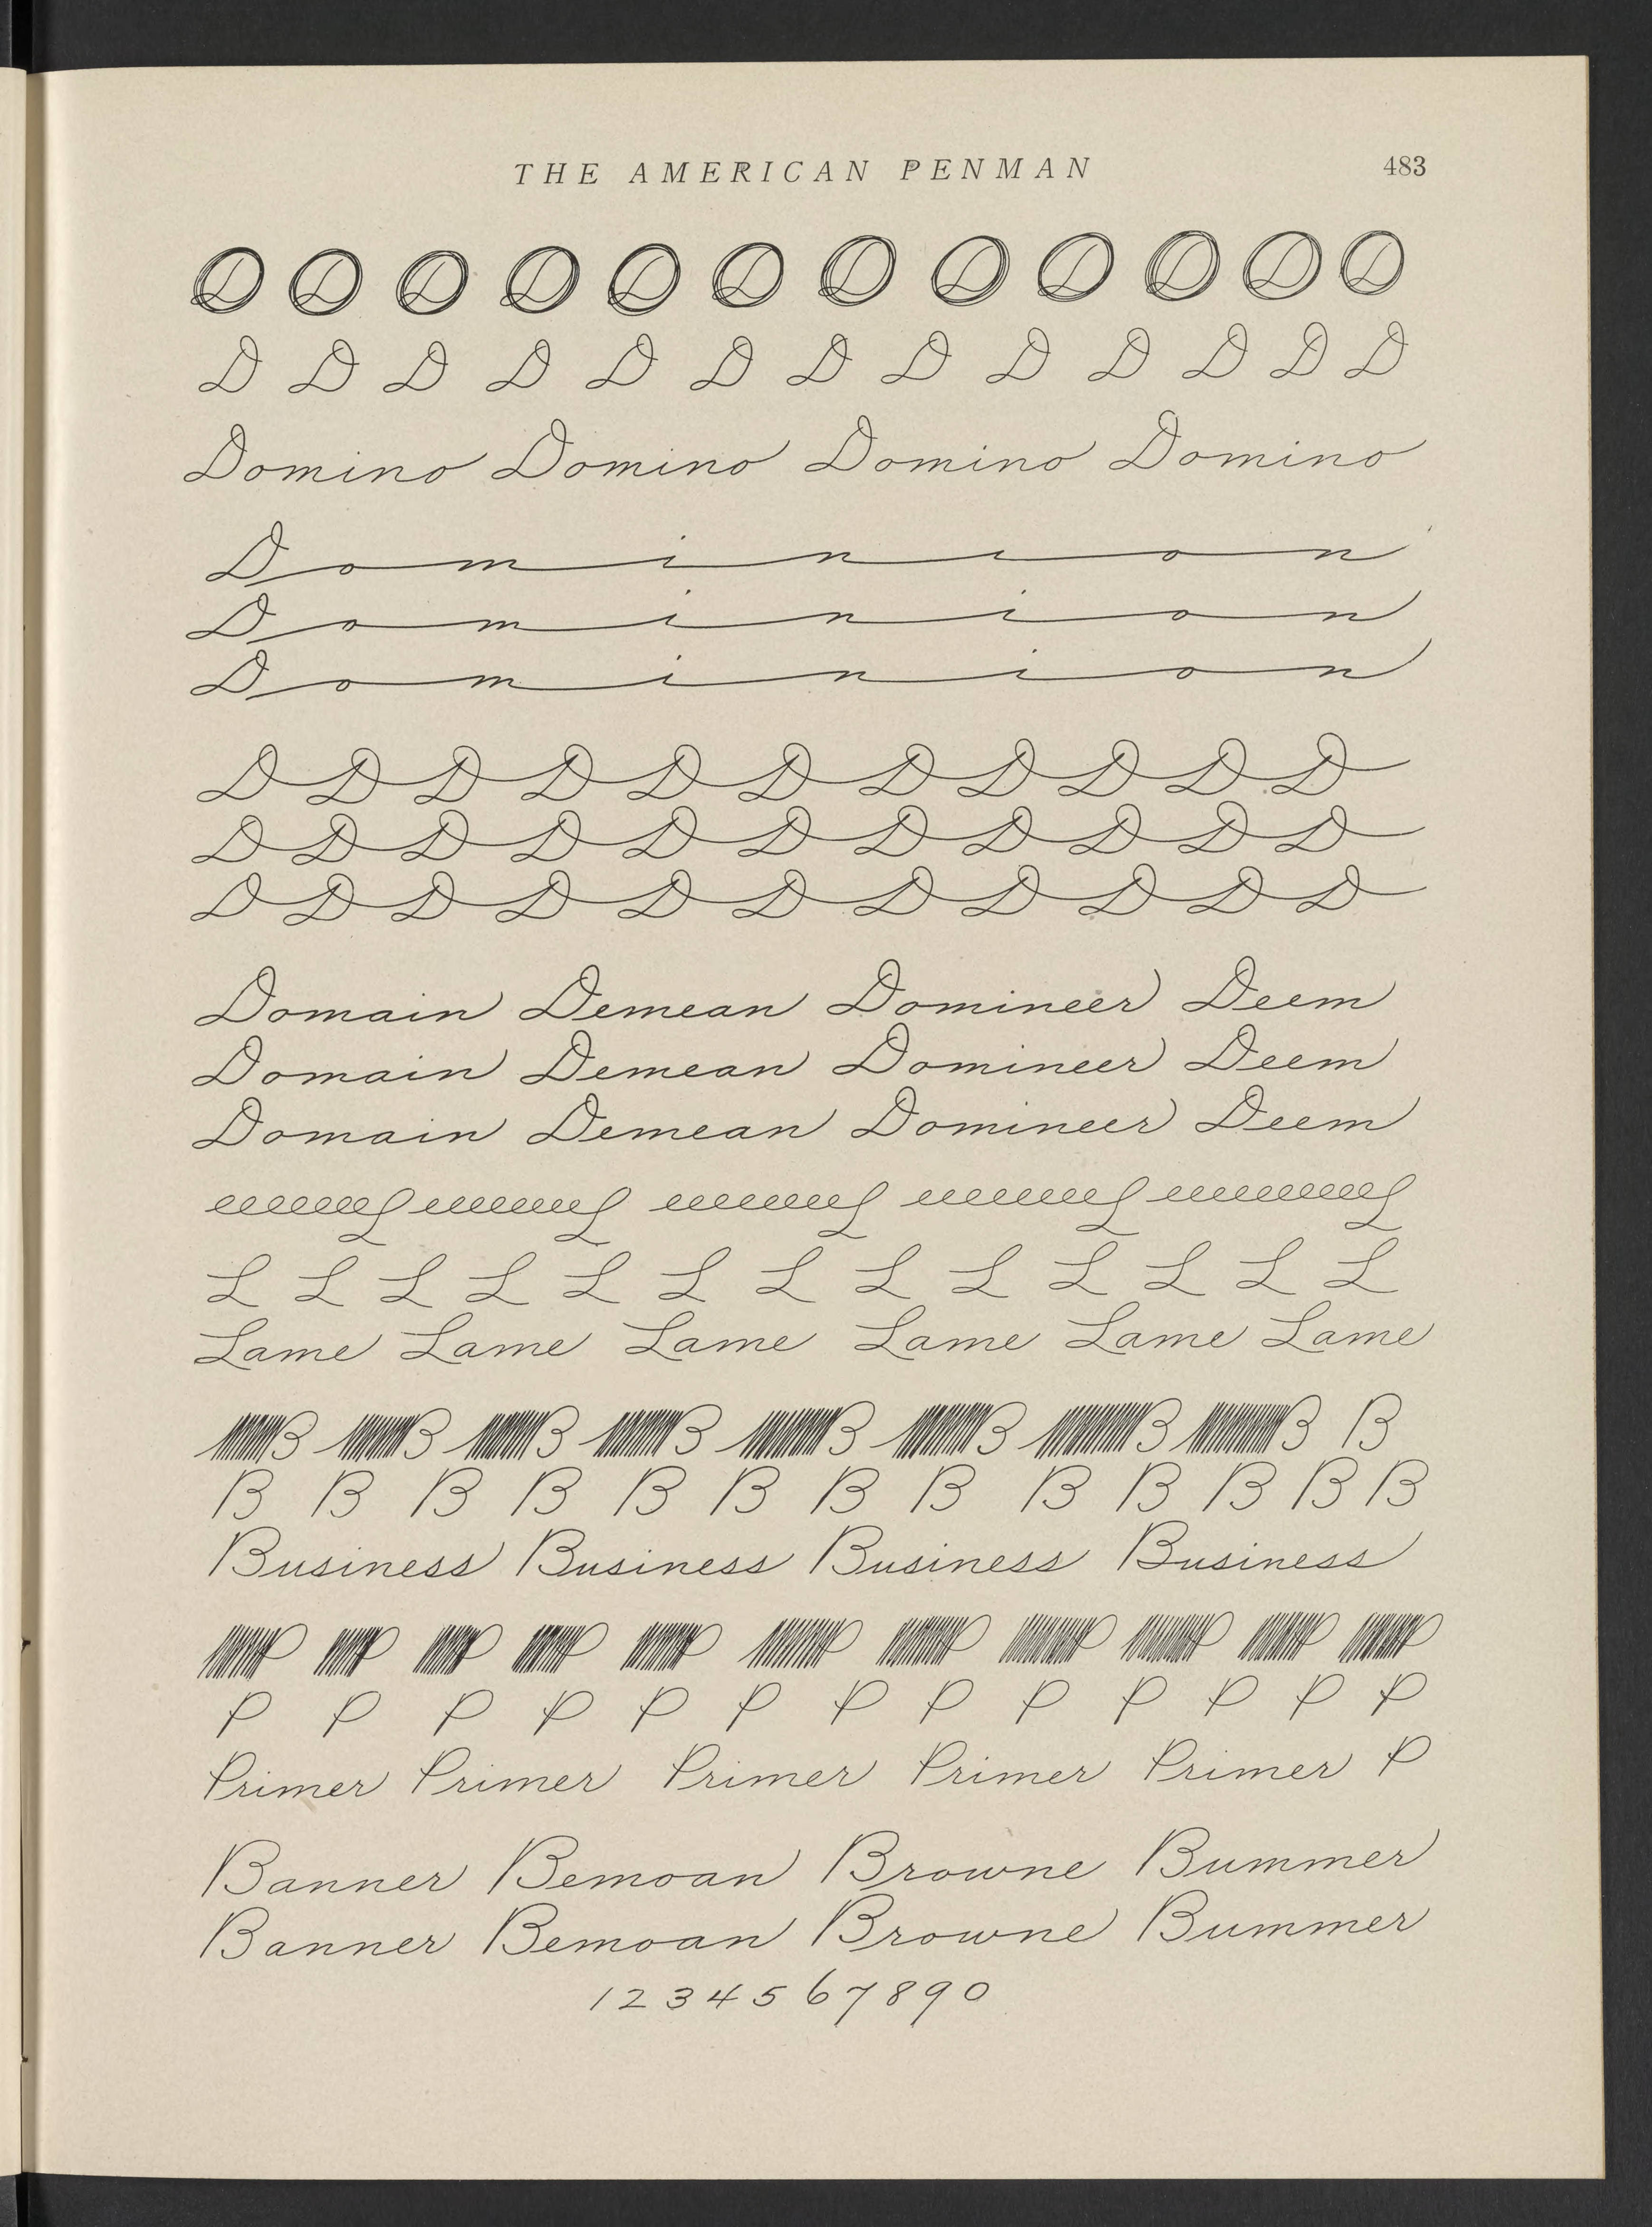 THE AMERICAN PENMAN 483
D D D D D D D D D D D D
D D D D D D D D D D D D D
Domino Domino Domino Domino
Dominion
Dominion
Dominion
D D D D D D D D D D D
D D D D D D D D D D D
D D D D D D D D D D D
Domain Demean Domineer Deem
Domain Demean Domineer Deem
Domain Demean Domineer Deem
L L L L L L L L L L L L L
Lame Lame Lame Lame Lame Lame
B B B B B B B B B
B B B B B B B B B B B B B
Business Business Business Business
P P P P P P P P P P P
P P P P P P P P P P P P P
Primer Primer Primer Primer Primer P
Banner Bemoan Browne Bummer
Banner Bemoan Browne Bummer
1 2 3 4 5 6 7 8 9 0